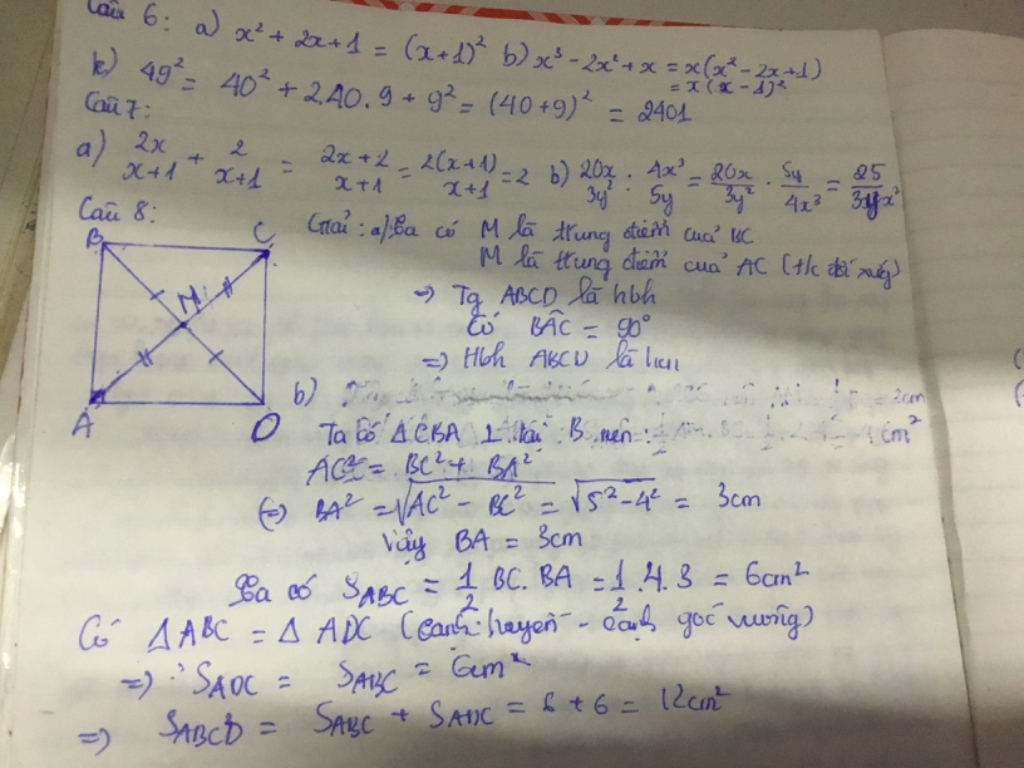 Câu 6: a) x² + 2x + 1 = (x+1)² b) x³ - 2x² + x = x(x² - 2x + 1)
= x(x - 1)²
49² = 40² + 2.40.9 + 9² = (40+9)² = 2401
Câu 7:
a) 2x/x+1 + 2/x+1 = 2x+2/x+1 = 2(x+1)/x+1 = 2 b) 20x/3y² : 4x³/5y = 20x/3y² . 5y/4x³ = 25/3yx²
Câu 8:
Giải: a) Ta có M là trung điểm của BC
M là trung điểm của AC (tc đối xứng)
=> Tg ABCD là hbh
Có BÂC = 90°
=> Hbh ABCD là hcn
B C
M
A D
b)
2cm
Ta có ΔCBA ⊥ tại B nên:
4cm²
AC² = BC² + BA²
(=) BA² = √AC² - BC² = √5² - 4² = 3cm
Vậy BA = 3cm
Ta có S_ABC = 1/2 BC.BA = 1/2 .4.3 = 6cm²
Có ΔABC = Δ ADC (cạnh huyền - cạnh góc vuông)
=> S_ADC = S_ABC = 6cm²
=> S_ABCD = S_ABC + S_ADC = 6 + 6 = 12cm²